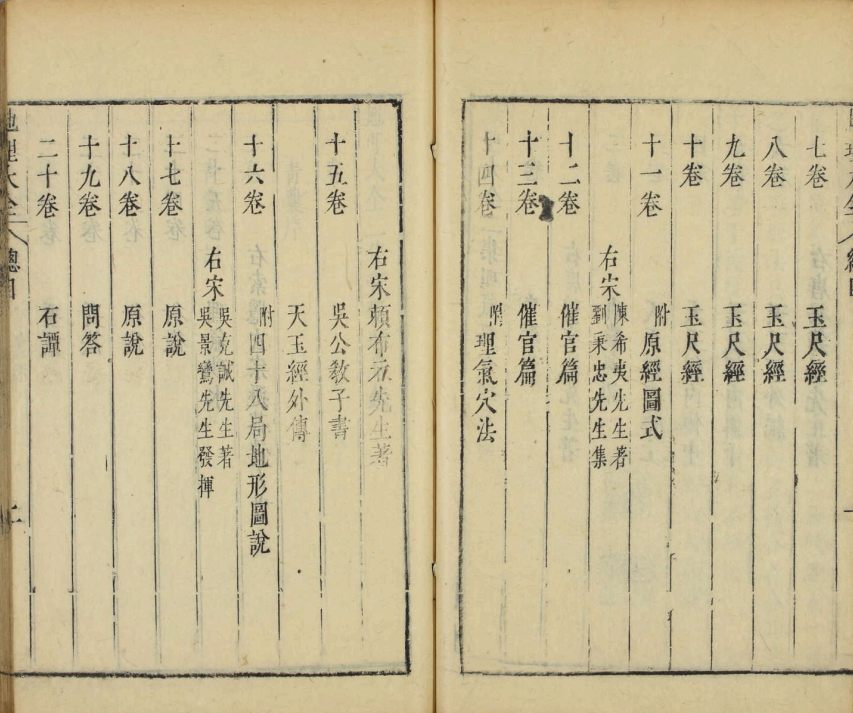 七卷 玉尺經
八卷 玉尺經
九卷 玉尺經
十卷 玉尺經
十一卷 附原經圖式
右宋 陳希夷先生著
劉秉忠先生集
十二卷 催官篇
十三卷 催官篇
十四卷 附理氣穴法
右宋賴布衣先生著
十五卷 吳公敎子書
天玉經外傳
十六卷 附四十八局地形圖說
右宋 吳克誠先生著
吳景鸞先生發揮
十七卷 原說
十八卷 原說
十九卷 問答
二十卷 石譚
地理大全 總目 二